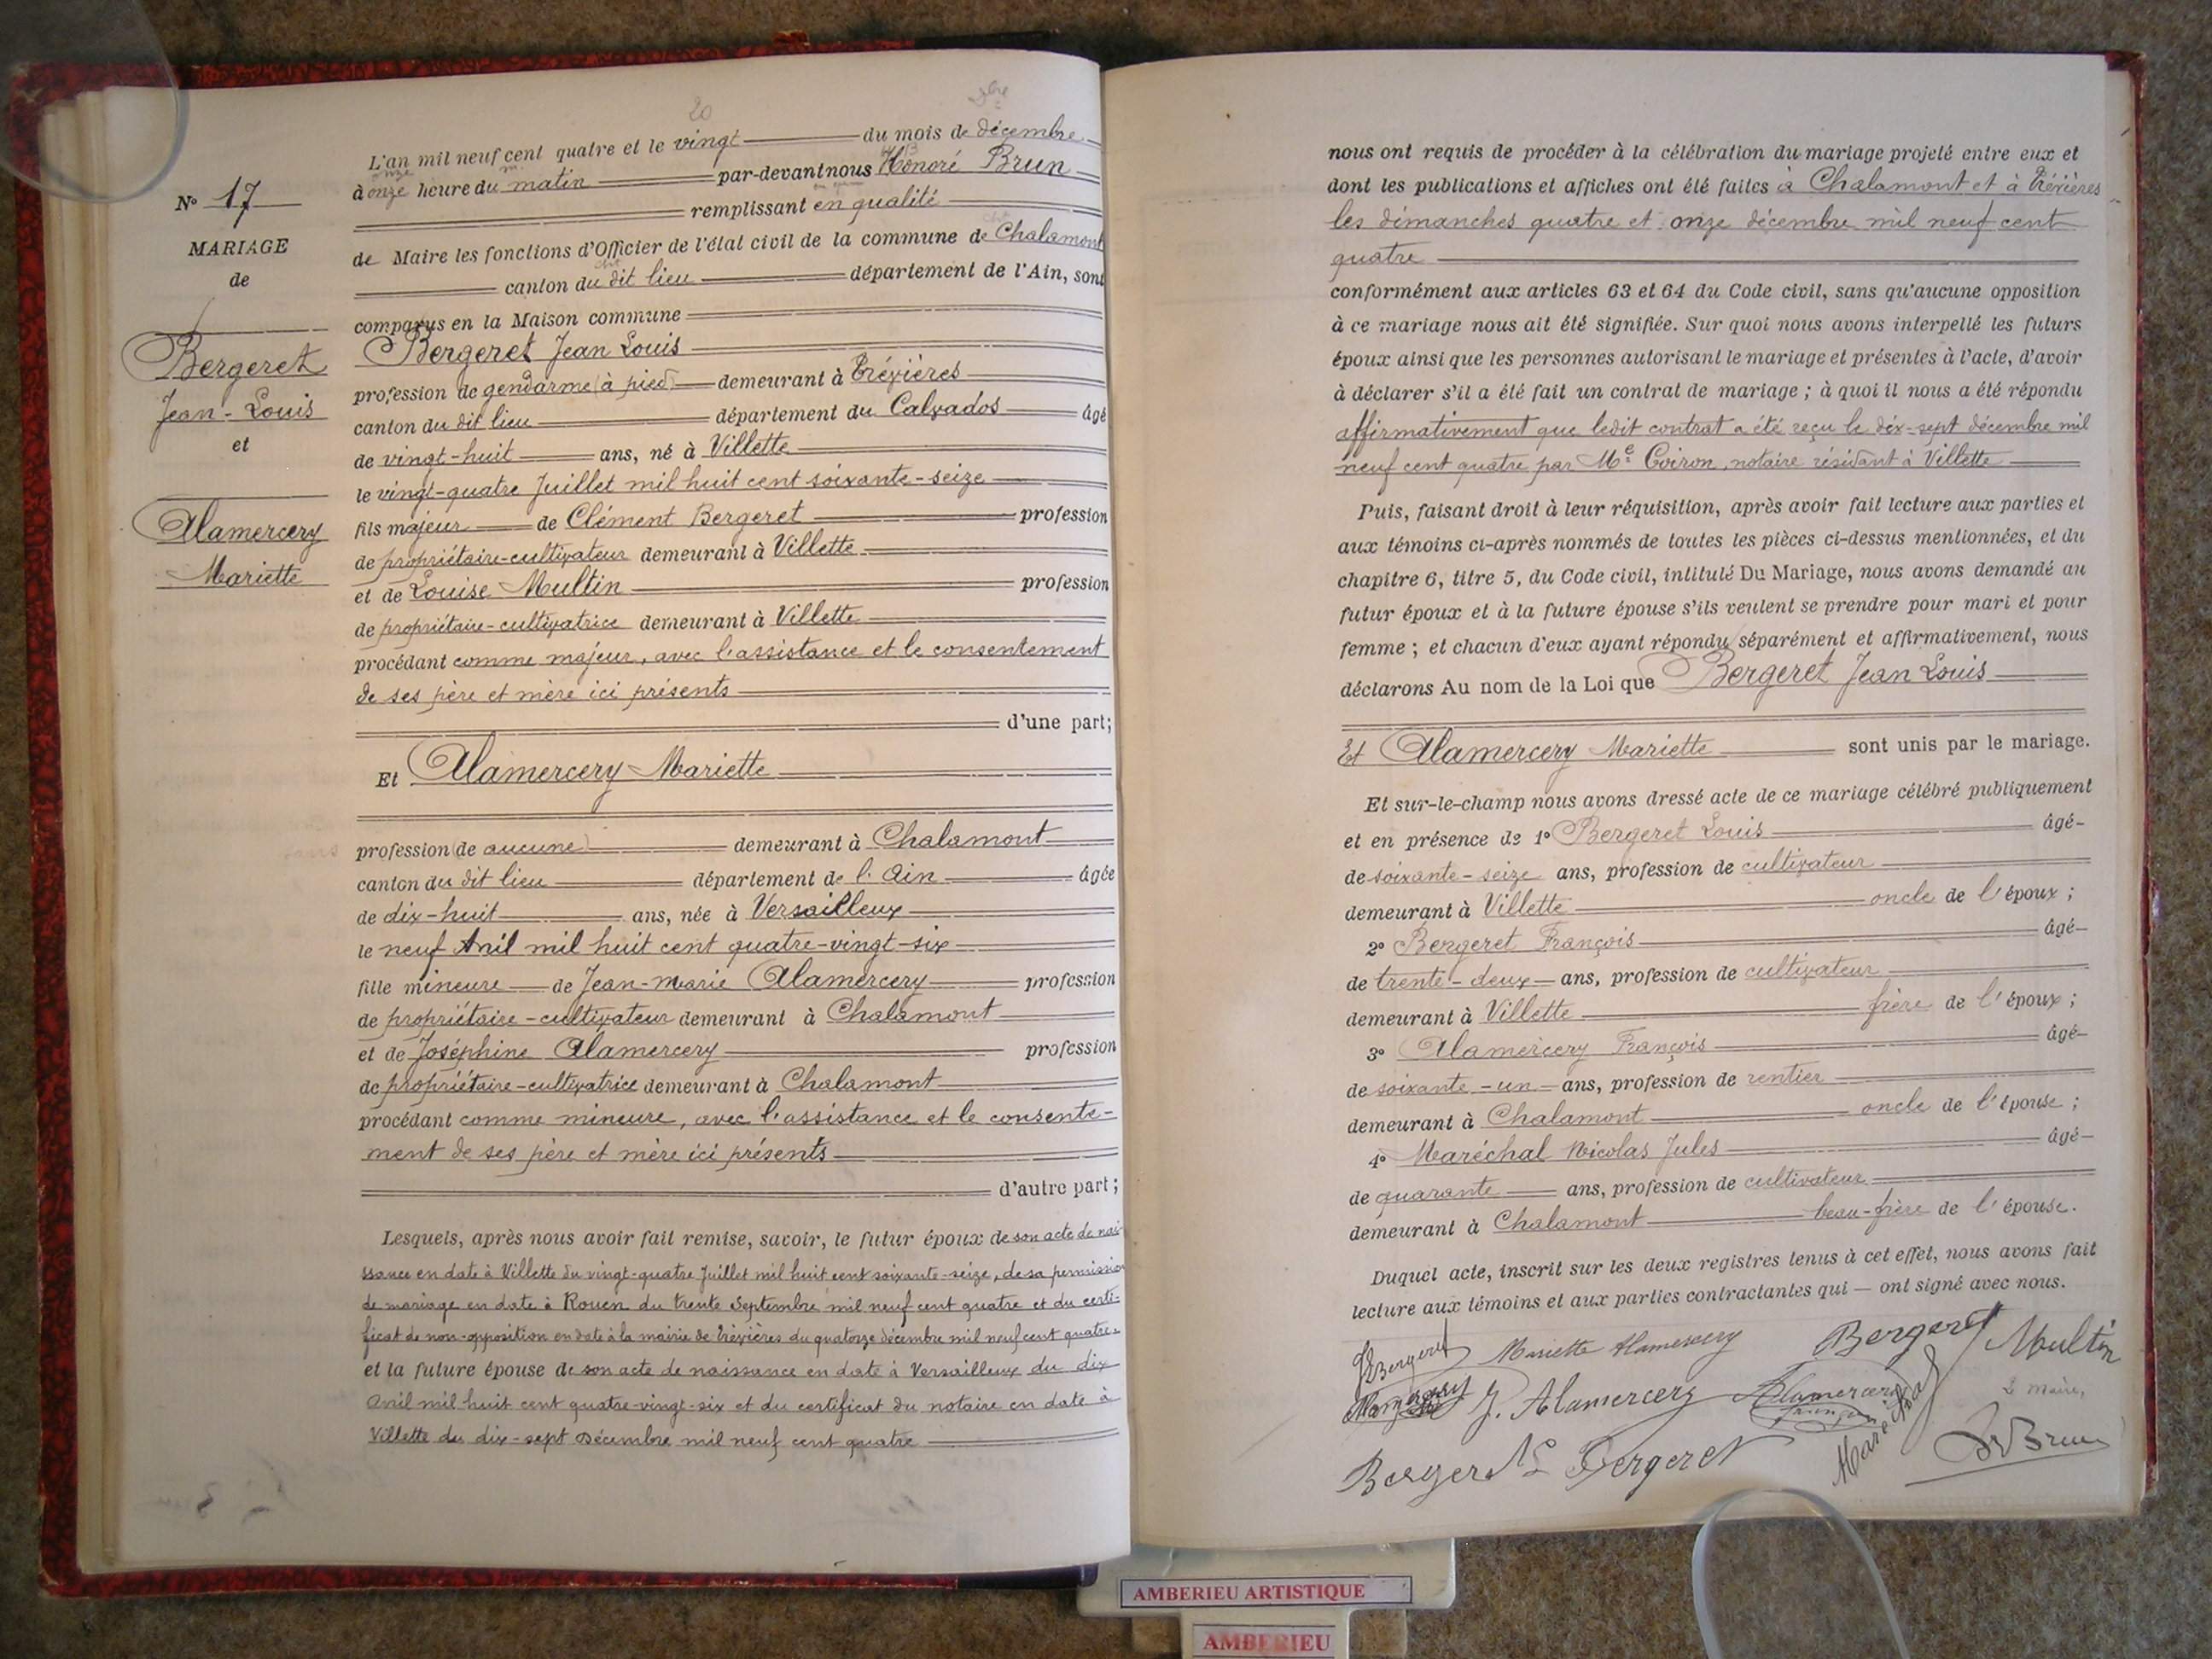 20
N° 17
MARIAGE
de
Bergeret
Jean-Louis
et
Alamercery
Mariette
L'an mil neuf cent quatre et le vingt du mois de décembre
à onze heure du matin par-devant nous Honoré Brun
remplissant en qualité
de Maire les fonctions d'Officier de l'état civil de la commune de Chalamont
canton du dit lieu département de l'Ain, sont
comparus en la Maison commune
Bergeret Jean Louis
profession de gendarme (à pied) demeurant à Trévières
canton du dit lieu département du Calvados âgé
de vingt-huit ans, né à Villette
le vingt-quatre Juillet mil huit cent soixante-seize
fils majeur de Clément Bergeret profession
de propriétaire-cultivateur demeurant à Villette
et de Louise Multin profession
de propriétaire-cultivatrice demeurant à Villette
procédant comme majeur, avec l'assistance et le consentement
de ses père et mère ici présents
d'une part;
Et Alamercery Mariette
profession (de aucune) demeurant à Chalamont
canton du dit lieu département de l'Ain âgée
de dix-huit ans, née à Versailleux
le neuf Avril mil huit cent quatre-vingt-six
fille mineure de Jean-Marie Alamercery profession
de propriétaire-cultivateur demeurant à Chalamont
et de Joséphine Alamercery profession
de propriétaire-cultivatrice demeurant à Chalamont
procédant comme mineure, avec l'assistance et le consente-
ment de ses père et mère ici présents
d'autre part;
Lesquels, après nous avoir fait remise, savoir, le futur époux de son acte de nai-
ssance en date à Villette du vingt-quatre Juillet mil huit cent soixante-seize, de sa permission
de mariage en date à Rouen du trente Septembre mil neuf cent quatre et du certi-
ficat de non-opposition en date à la mairie de Trévières du quatorze décembre mil neuf cent quatre
et la future épouse de son acte de naissance en date à Versailleux du dix
Avril mil huit cent quatre-vingt-six et du certificat du notaire en date à
Villette du dix-sept Décembre mil neuf cent quatre
nous ont requis de procéder à la célébration du mariage projeté entre eux et
dont les publications et affiches ont été faites à Chalamont et à Trévières
les dimanches quatre et onze décembre mil neuf cent
quatre
conformément aux articles 63 et 64 du Code civil, sans qu'aucune opposition
à ce mariage nous ait été signifiée. Sur quoi nous avons interpellé les futurs
époux ainsi que les personnes autorisant le mariage et présentes à l'acte, d'avoir
à déclarer s'il a été fait un contrat de mariage; à quoi il nous a été répondu
affirmativement que ledit contrat a été reçu le dix-sept décembre mil
neuf cent quatre par Me Coiron, notaire résidant à Villette
Puis, faisant droit à leur réquisition, après avoir fait lecture aux parties et
aux témoins ci-après nommés de toutes les pièces ci-dessus mentionnées, et du
chapitre 6, titre 5, du Code civil, intitulé Du Mariage, nous avons demandé au
futur époux et à la future épouse s'ils veulent se prendre pour mari et pour
femme; et chacun d'eux ayant répondu séparément et affirmativement, nous
déclarons Au nom de la Loi que Bergeret Jean Louis
Et Alamercery Mariette sont unis par le mariage.
Et sur-le-champ nous avons dressé acte de ce mariage célébré publiquement
et en présence de 1° Bergeret Louis âgé
de soixante-seize ans, profession de cultivateur
demeurant à Villette oncle de l'époux;
2° Bergeret François âgé
de trente-deux ans, profession de cultivateur
demeurant à Villette frère de l'époux;
3° Alamercery François âgé
de soixante-un ans, profession de rentier
demeurant à Chalamont oncle de l'épouse;
4° Maréchal Nicolas Jules âgé
de quarante ans, profession de cultivateur
demeurant à Chalamont beau-frère de l'épouse.
Duquel acte, inscrit sur les deux registres tenus à cet effet, nous avons fait
lecture aux témoins et aux parties contractantes qui — ont signé avec nous.
JLBergeret Mariette Alamercery Bergeret Multin
J. Alamercery Alamercery françois Maréchal
Le maire,
Bergeret Ls Bergeret HBrun
AMBERIEU ARTISTIQUE
AMBERIEU